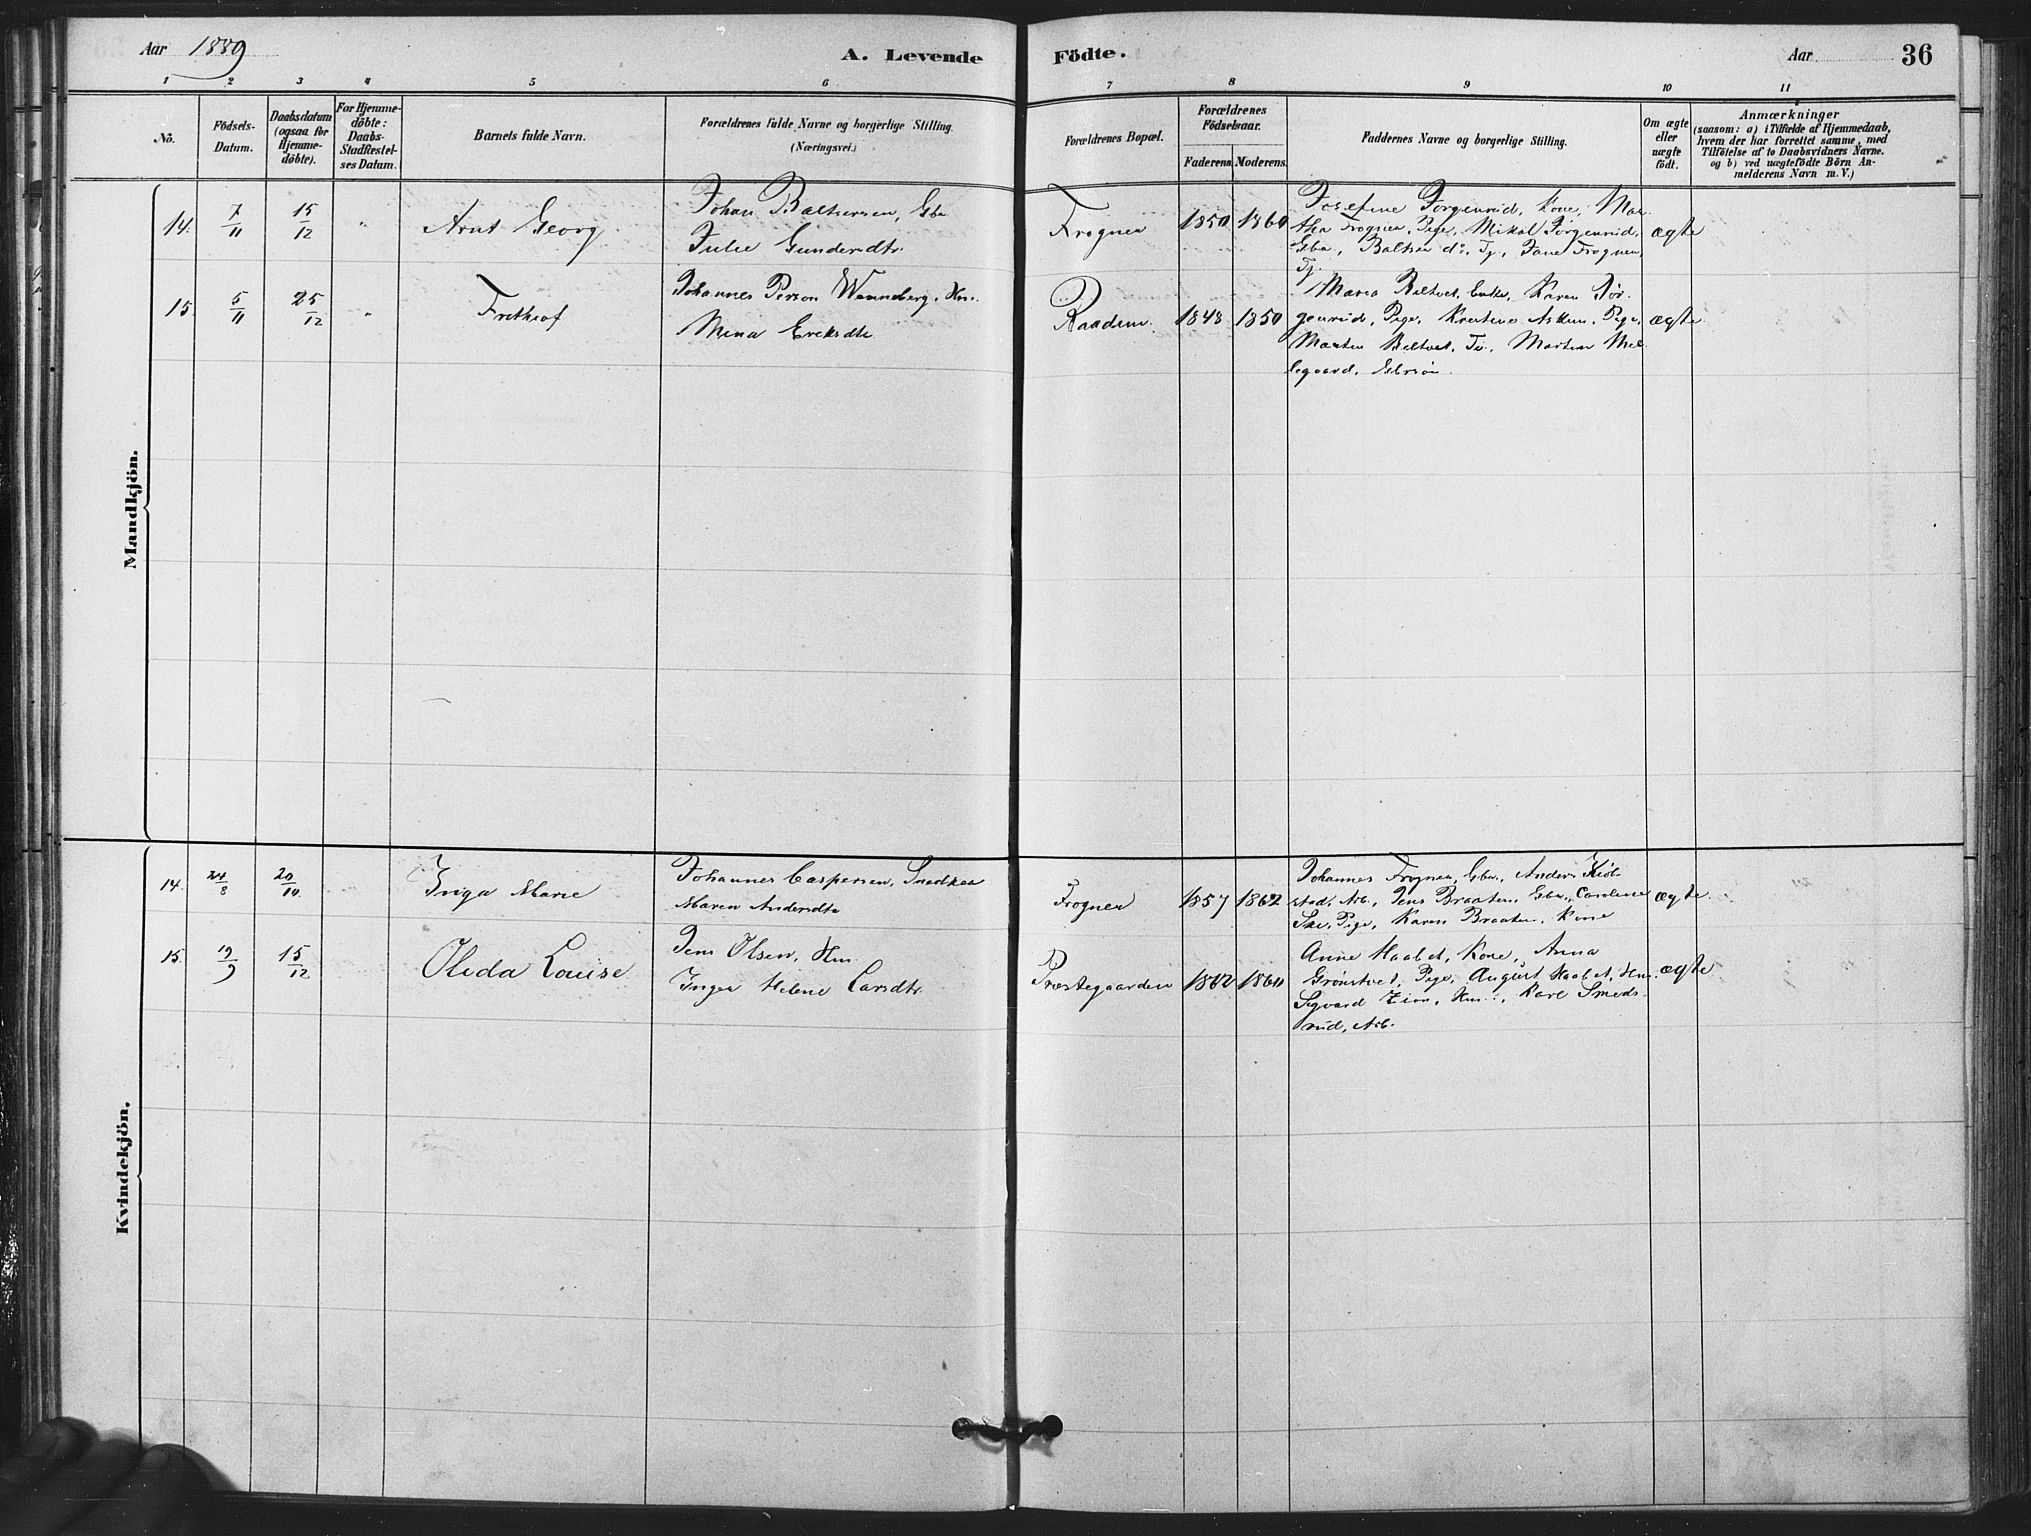 Aar 1889
A. Levende
Födte.
Aar
36
1 2 3 4 5 6 7 8 9 10 11
No.
Födsels-
Datum.
Daabsdatum
(ogsaa for
Hjemme-
döbte).
For Hjemme-
döbte:
Daabs-
Stadfæstel-
ses Datum.
Barnets fulde Navn.
Forældrenes fulde Navne og borgerlige Stilling.
(Næringsvei.)
Forældrenes Bopæl.
Forældrenes
Födselsaar.
Faderens.
Moderens.
Faddernes Navne og borgerlige Stilling.
Om ægte
eller
uægte
født.
Anmærkninger
(saasom: a) i Tilfælde af Hjemmedaab,
hvem der har forrettet samme, med
Tilföielse af to Daabsvidners Navne.
og b) ved uægtefödte Börn An-
melderens Navn m. V.)
Mandkjön.
14. 7/11 15/12 " Arnt Georg
Johan Baltsersen, Gbr.
Julie Gundersdtr.
Frogner 1850 1860
Josefine Jorgenrud, Kone, Mar-
tha Frogner, Pige, Mikal Jorgenrud,
Gbr., Baltser do, Tj., Jane Frogner,
Tj.
ægte
15. 5/11 25/12 " Frithiof
Johannes Person Wenneberg, Hm.
Mina Ericksdtr.
Raaden. 1848 1850
Maria Biltvet, Enke, Karen Jør-
genrud, Pige, Kristine Asken, Pige,
Marten Biltvet, Tj., Martin Mel-
legaard, Gbrsøn.
ægte
Kvindekjön.
14. 24/8 20/10. Inga Marie
Johannes Caspersen, Snedker
Maren Andersdtr
Frogner 1857 1862
Johannes Frogner, Gbr., Anders Kiøl-
stad, Arb., Jens Braaten, Gbr., Caroline
Ske, Pige, Karen Braaten, Kone
ægte
15. 19/9 15/12 Oleda Louise
Jens Olsen, Hm.
Inger Helene Larsdtr.
Præstegaarden 1862 1860
Anne Haabet, Kone, Anna
Grønstvet, Pige, August Haabet, Hm.
Sigvard Zion, Hm., Karl Smeds-
rud, Arb.
ægte